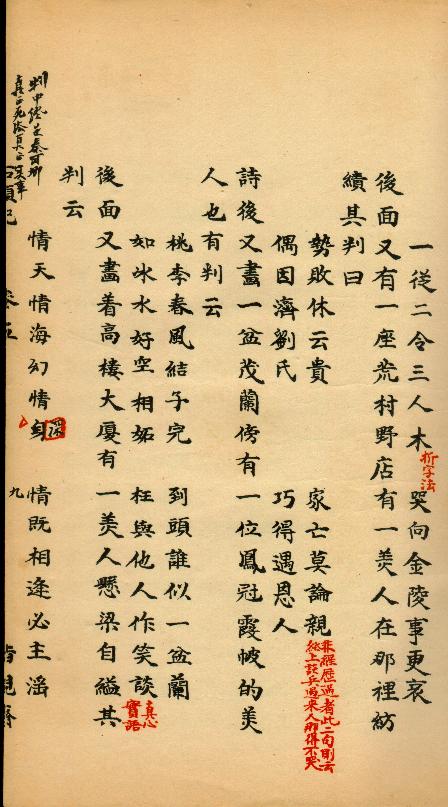 一從二令三人木 哭向金陵事更哀
拆字法
後面又有一座荒村野店有一美人在那裡紡
績其判曰
勢敗休云貴 家亡莫論親
非經歷過者此二句則云
紙上談兵過來人那得不哭
偶因濟劉氏 巧得遇恩人
詩後又畫一盆茂蘭傍有一位鳳冠霞帔的美
人也有判云
桃李春風結子完 到頭誰似一盆蘭
如冰水好空相妬 枉與他人作笑談
真心
實語
後面又畫着高樓大廈有一美人懸梁自縊其
判云
情天情海幻情身 情既相逢必主滛
深
九